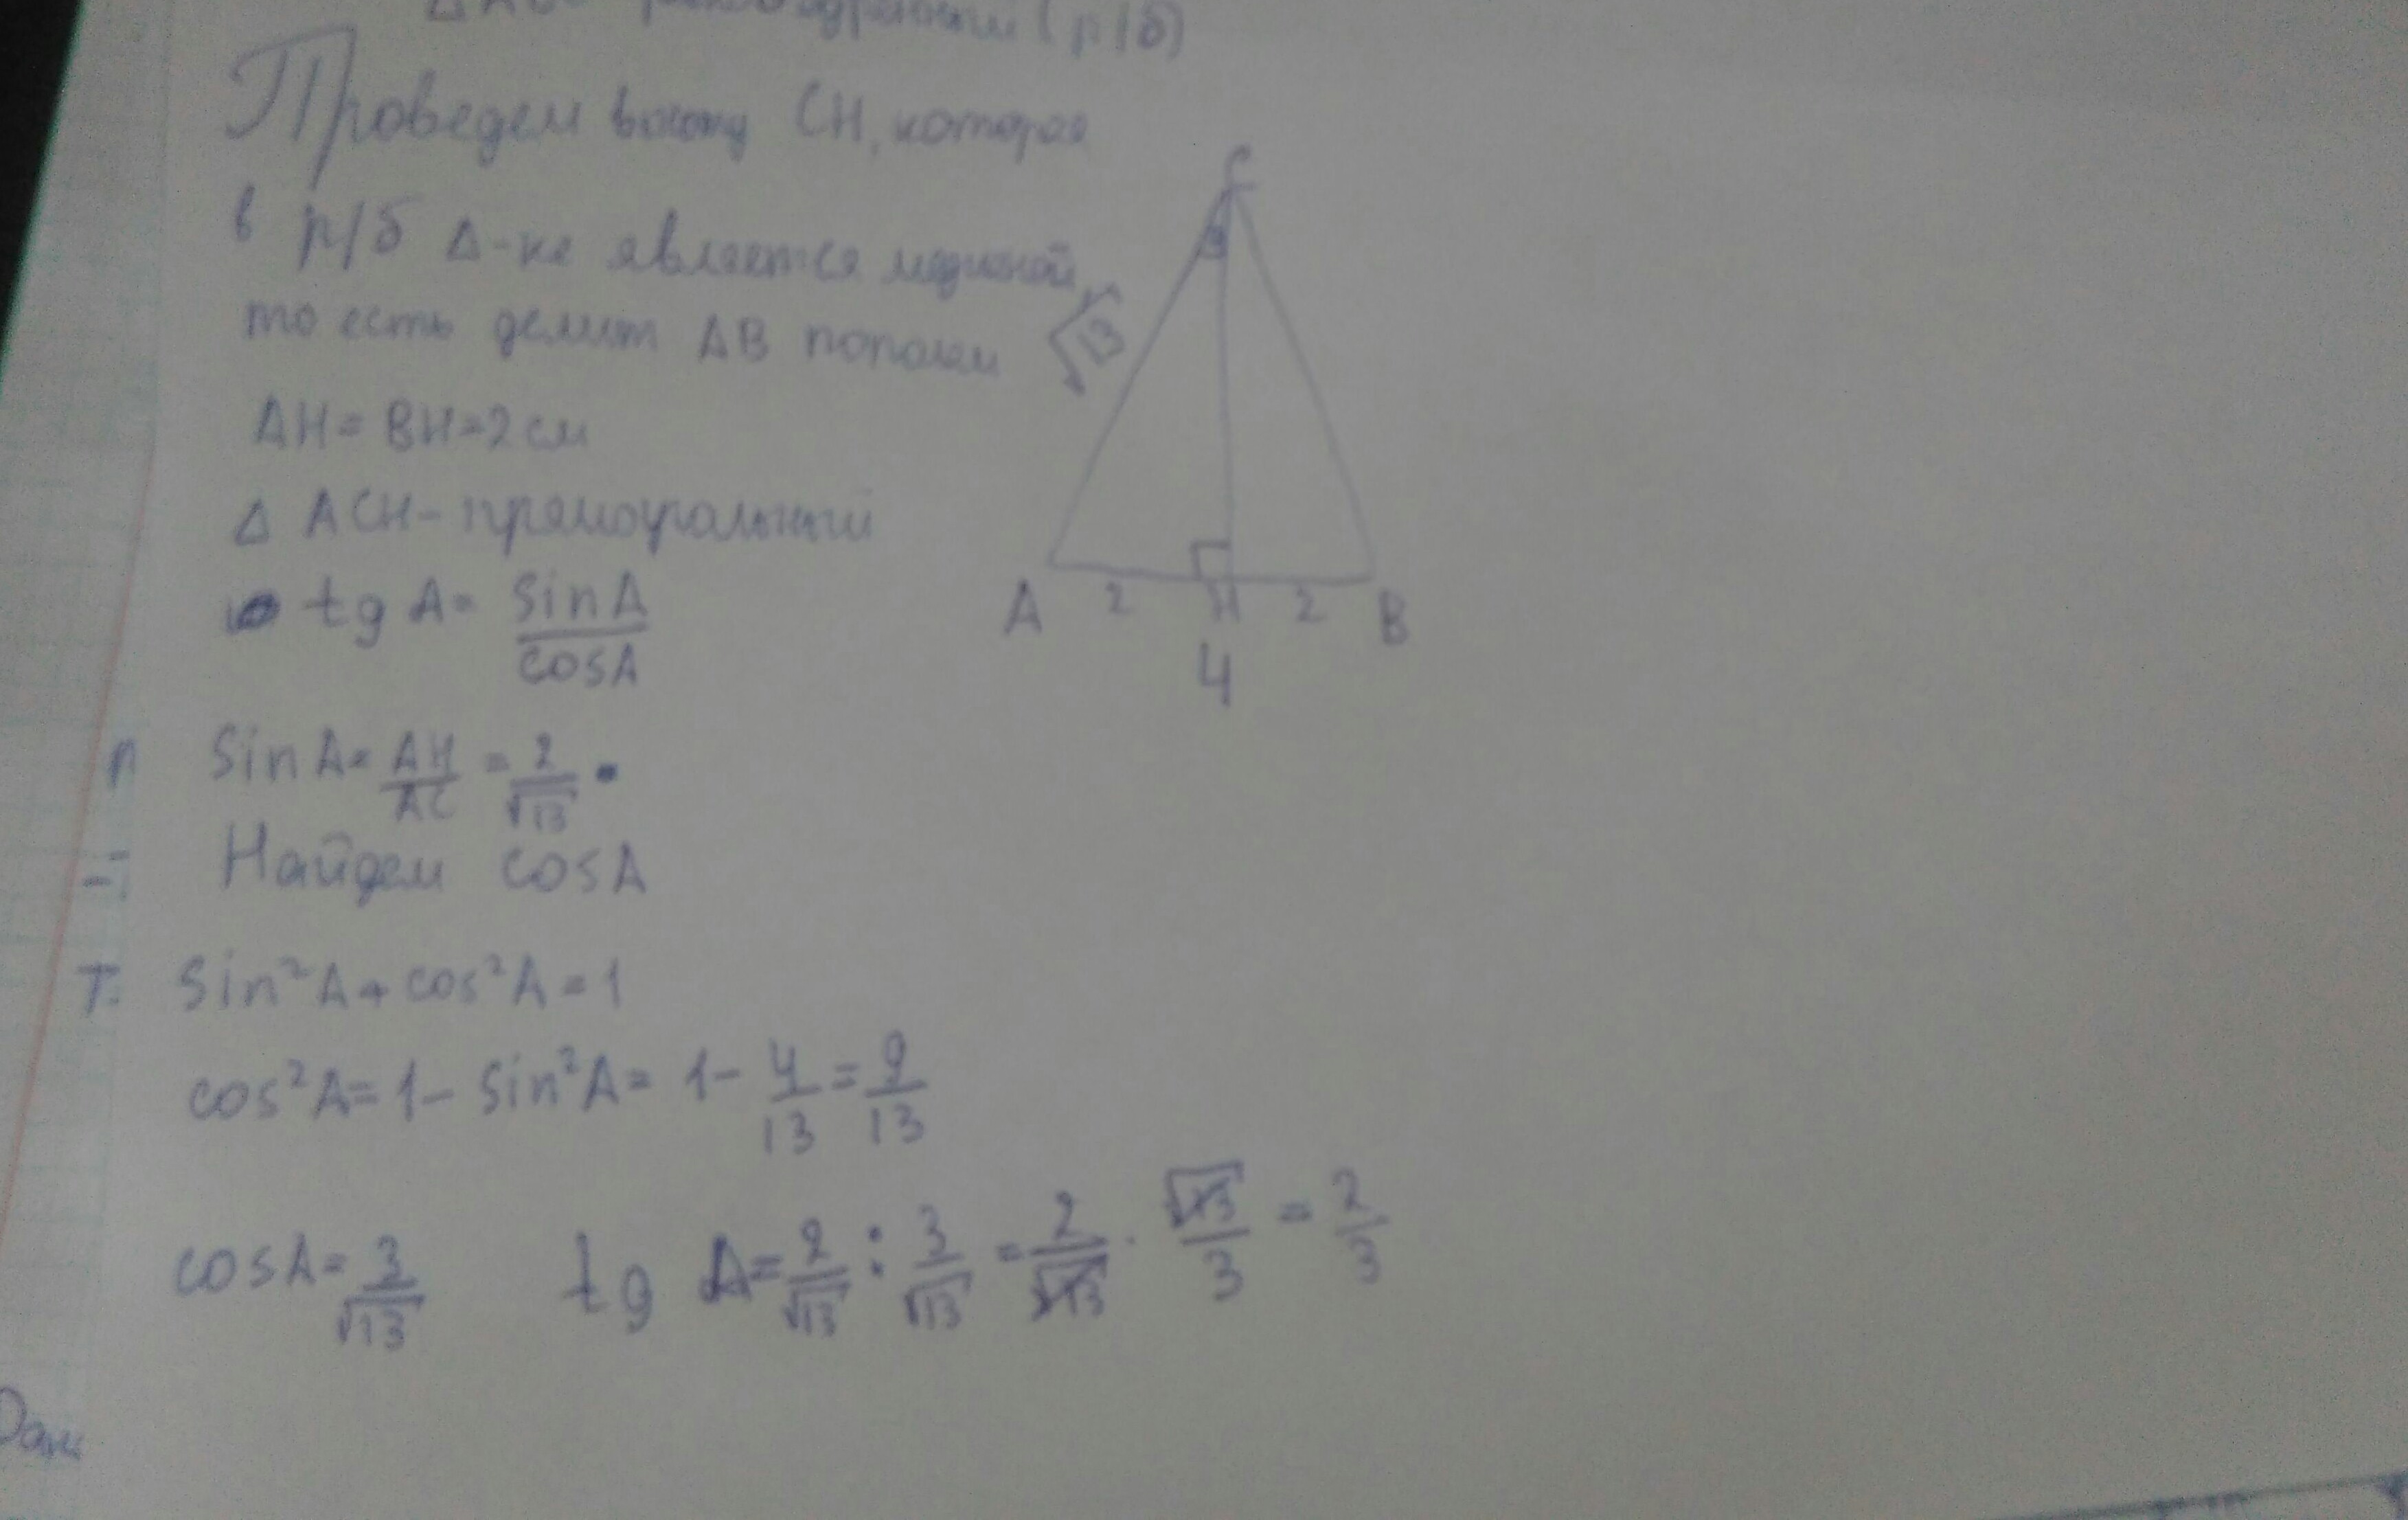 (р/б)
Проведем высоту CH, которая
в р/б Δ-ке является медианой,
то есть делит AB пополам
AH = BH = 2 см
Δ ACH - прямоугольный
tg A = sin A / cos A
sin A = AH / AC = 2 / √13
Найдем cos A
sin²A + cos²A = 1
cos²A = 1 - sin²A = 1 - 4/13 = 9/13
cos A = 3/√13 tg A = 2/√13 : 3/√13 = 2/√13 · √13/3 = 2/3
C
√13
A 2 H 2 B
4